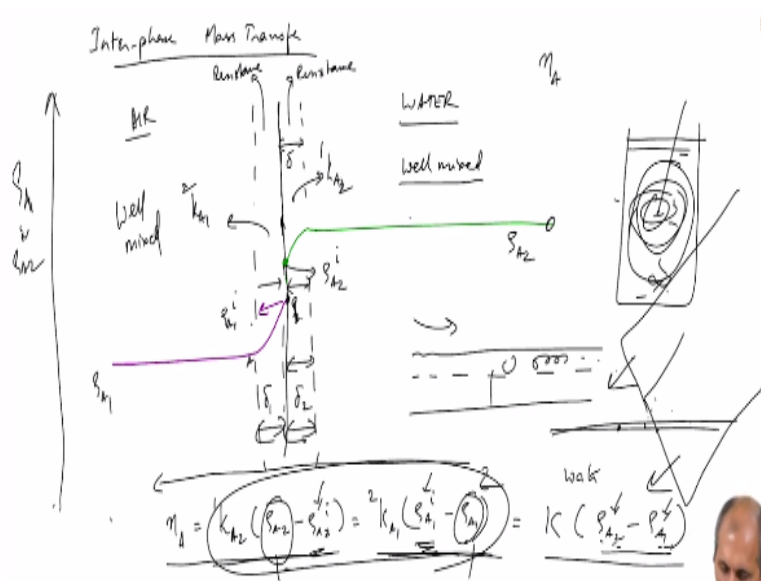 Inter-phase Mass Transfer
Resistance Resistance
η_A
AIR
WATER
δ
Well mixed
¹k_A2
Well mixed
²k_A1
ρ_A2
ρ_A2^i
ρ_A1^i
ρ_A1
δ_1 δ_2
η_A = ¹k_A2 (ρ_A2 - ρ_A2^i) = ²k_A1 (ρ_A1^i - ρ_A1) = K (ρ_A2 - ρ_A1)